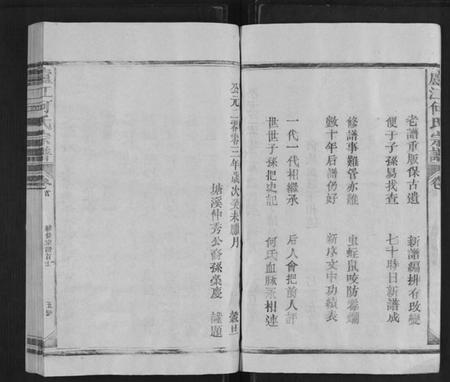 廬江何氏宗譜
老譜重版保古遺 新譜編排有改變
便于子孫易找查 七十時日新譜成
修譜事難管亦難 虫蛀鼠咬防霉爛
數十年后譜仍好 新序文中功績表
一代一代相繼承 后人會把前人評
世世子孫把史記 何氏血脉永相連
公元二零零三年歲次癸未臘月 穀旦
塘溪仲秀公裔孫榮慶 謹題
廬江何氏宗譜
卷首